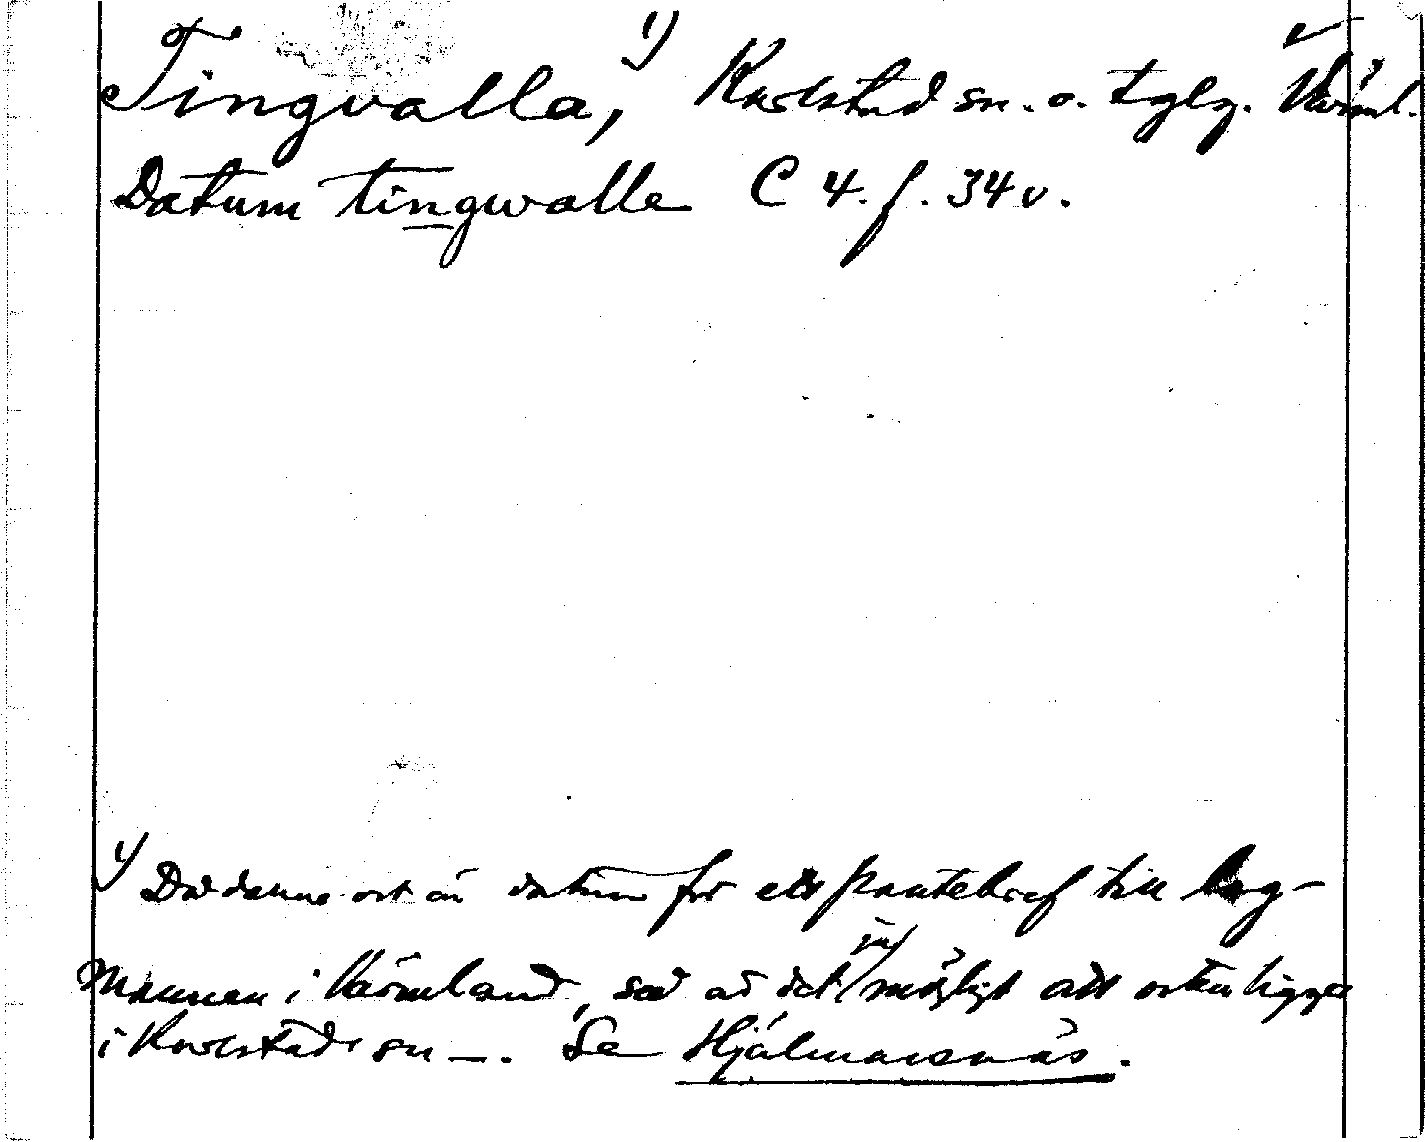 Tingvalla, 1) Karlstad sn. o. tglg. Värml.
Datum tingwalle C 4. f. 34 v.
1) Då denna ort är datum för ett pantebref till lag-
mannen i Värmland, så är det ju möjligt att orten ligger
i Karlstads sn —. Se Hjälmarsnäs.